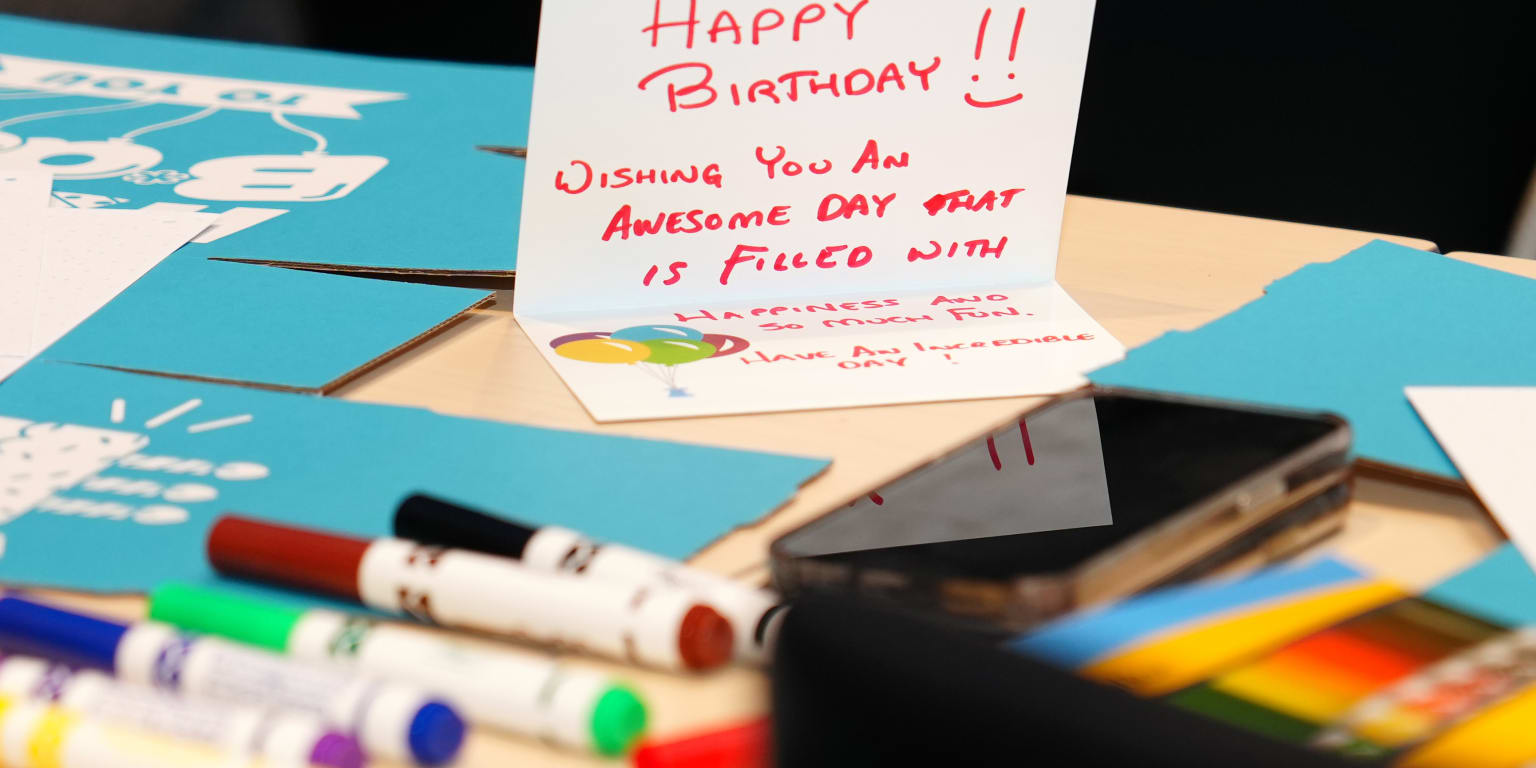 HAPPY
BIRTHDAY !!
WISHING YOU AN
AWESOME DAY THAT
IS FILLED WITH
HAPPINESS AND
SO MUCH FUN.
HAVE AN INCREDIBLE
DAY !
TO YOU